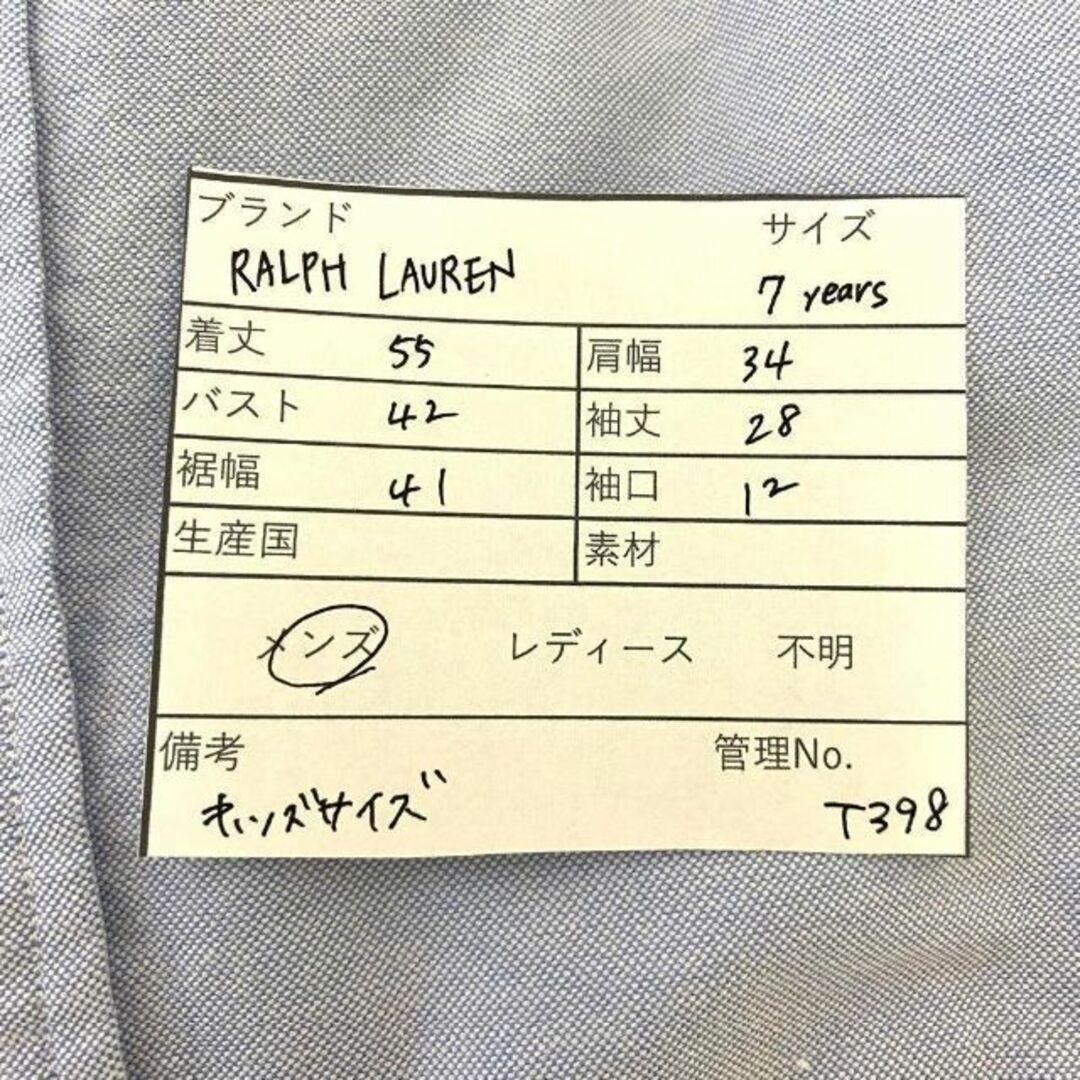 ブランド サイズ
RALPH LAUREN 7 years
着丈 55 肩幅 34
バスト 42 袖丈 28
裾幅 41 袖口 12
生産国 素材
メンズ レディース 不明
備考 管理No.
キッズサイズ T398